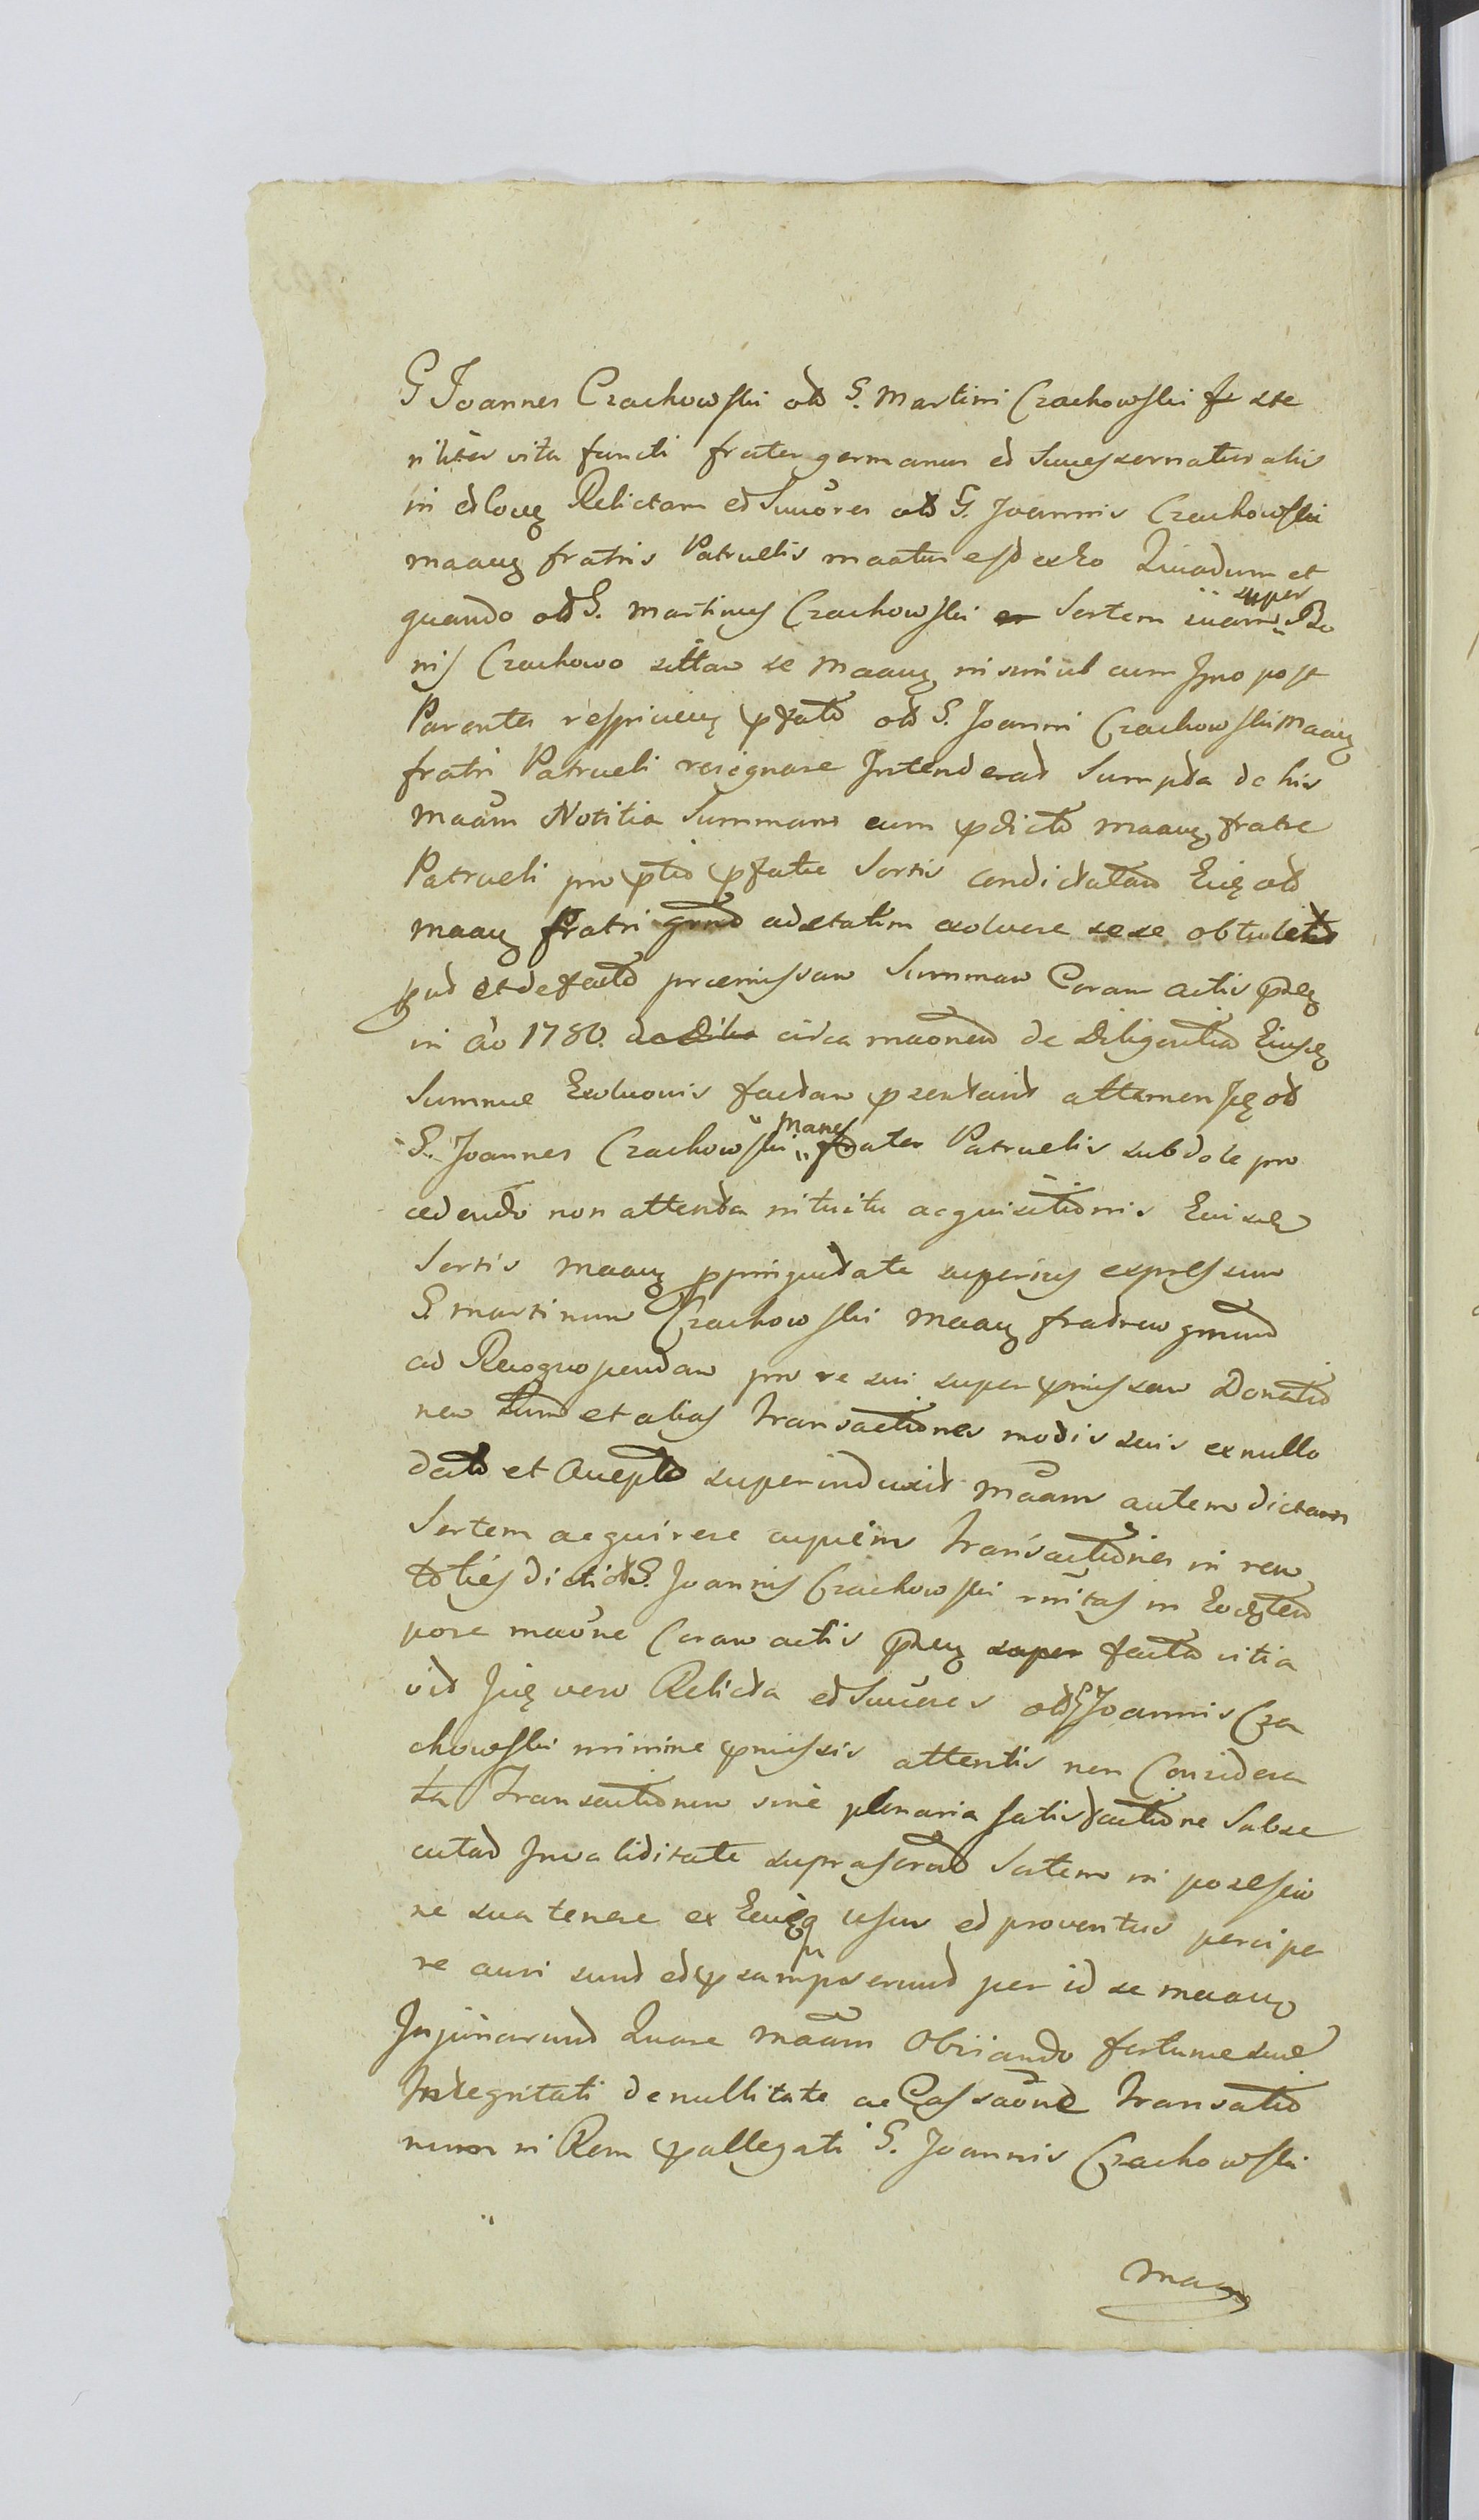 G Joannes Czachowski olt G. Martini Czachowski ste
riliter vita functi frater germanus et Successor naturalis
in et coutz Relictam et Succōres olt G. Joannis Czachowski
maang fratris Patruelis maatur est ex Eo Quia dum et
quando olt G. Martinus Czachowski Sortem suam super Bo
nis Czachowo sittam se Maang in simul cum Jpso post
Parentes respicientz pfato olt G. Joanni Czachowski Maang
fratri Patrueli resignare Intenderat Sumpta de his
maām Notitia Summam cum pdicto maang fratre
Patrueli pro ptio pfatae Sortis condictatam Euiq olt
maang fratri grmo ad statim exoluere sese obtulit
qud et de facto praemissam Summam Coram actis pntz
in āo 1780. circa maōnem de Diligentia Eiusdz
Summae Exoluōnis factam psentavit attamen Jdz olt
G. Joannes Czachowski Mang frater Patruelis subdole pro
cedendo non attenta intuitu acquisitionis Euisdz
Sortis maang ppinquitate superius expressum
G. Martinum Czachowski maang fratrem grmum
ad Recognoscendam pro re sui super pmissam Donatio
nem tum et alias transactiones modis suis ex nullo
dato et Accepto superinduxit māam autem dictam
Sortem acquirere cupiens transactiones in rem
toties dicti olt G. Joannis Czachowski initas in Eodz tem
pore maōne Coram actis pntz facto vitia
vit Jidz vero Relicta et Succōres olt G Joannis Cza
chowski minime pmissis attentis nec Considera
ta Transactionum sine plenaria satisfactione Subse
cutas Invaliditate suprascrad Sortem in possessio
ne sua tenere ex Eaq usus et proventus percipe
re ausi sunt et psumpserunt per id se maang
Injuriarunt Quare maām Obviando fortunae suae
Integritati de nullitate ac Cassaōne transactio
num in Rem pallegati G. Joannis Czachowski
maang